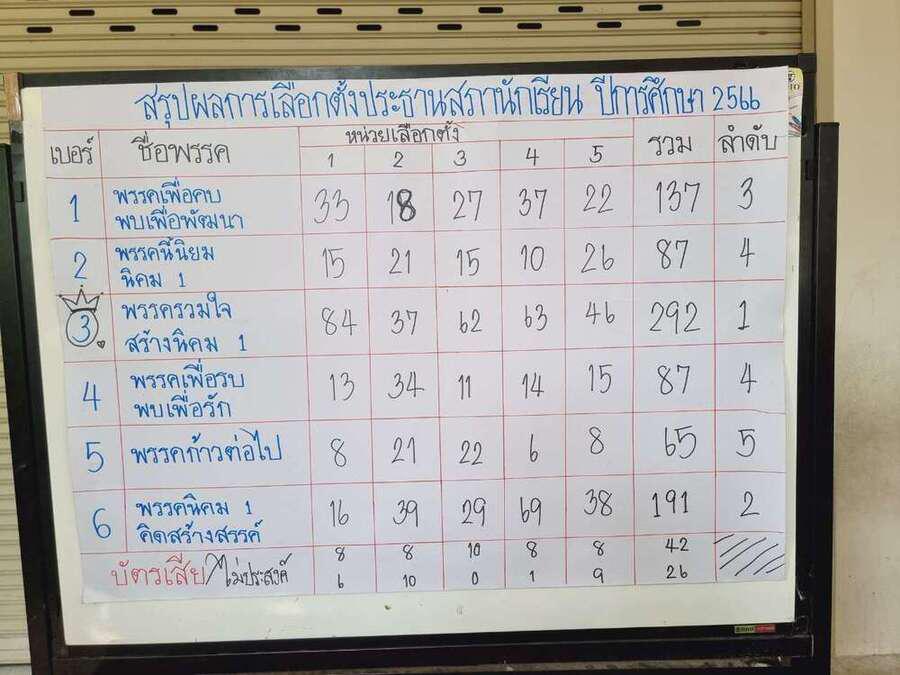 สรุปผลการเลือกตั้งประธานสภานักเรียน ปีการศึกษา 2566
เบอร์ ชื่อพรรค หน่วยเลือกตั้ง รวม ลำดับ
1 2 3 4 5
1 พรรคเพื่อคบ 33 18 27 37 22 137 3
พบเพื่อพัฒนา
2 พรรคนี้นิยม 15 21 15 10 26 87 4
นิคม 1
3 พรรครวมใจ 84 37 62 63 46 292 1
สร้างนิคม 1
4 พรรคเพื่อรบ 13 34 11 14 15 87 4
พบเพื่อรัก
5 พรรคก้าวต่อไป 8 21 22 6 8 65 5
6 พรรคนิคม 1 16 39 29 69 38 191 2
คิดสร้างสรรค์
8 8 10 8 8 42
บัตรเสีย/ไม่ประสงค์ 6 10 0 1 9 26